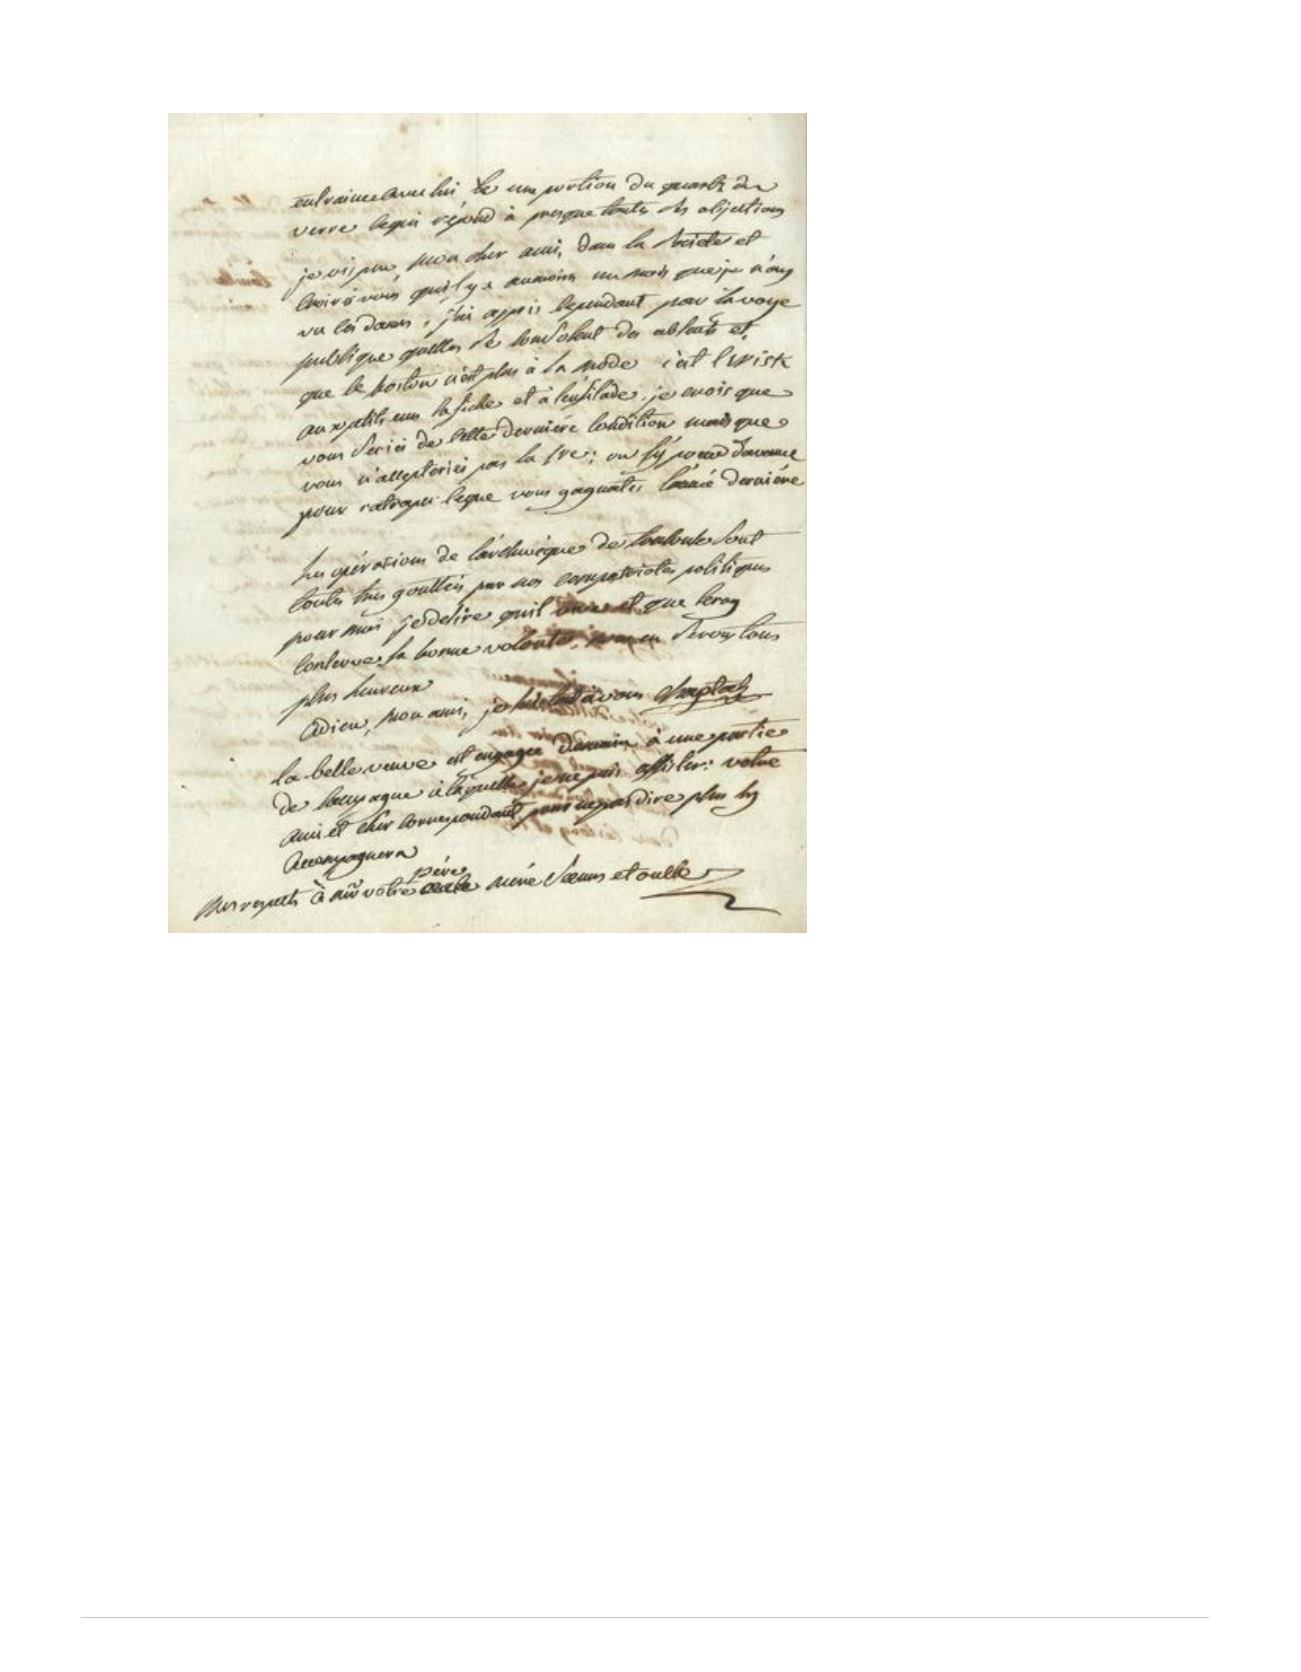 entraine avec lui une portion du quartz du
verre ce qui répond à presque toutes les objections
je vis peu, mon cher ami, dans la société et
croiriés vous qu'il y a aumoins un mois que je n'ay
vu les dames, j'ai appris cependant par la voye
publique qu'elles se consolent des absents et
que le boston n'est plus à la mode c'est l'wisk
aux petits ecus la fiche et à l'enfilade, je crois que
vous seriés de cette dernière condition mais que
vous n'accepteriés pas la 1re; on s'y d'avance
pour ratraper ce que vous gagnates l'année dernière
les opérations de l'archevêque de toulouse sont
toutes tres goutées par nos compatriotes politiques
pour moi je desire qu'il vive et que le roy
conserve sa bonne volonté, nous en serons tous
plus heureux
adieu, mon ami, je suis tout à vous Chaptal
la belle veuve est engagée demain à une partie
de campagne à laquelle je ne puis assister: votre
ami et cher correspondant pour ne pas dire plus l'y
accompagnera
mes respects à mr votre père mère sœurs et oncle